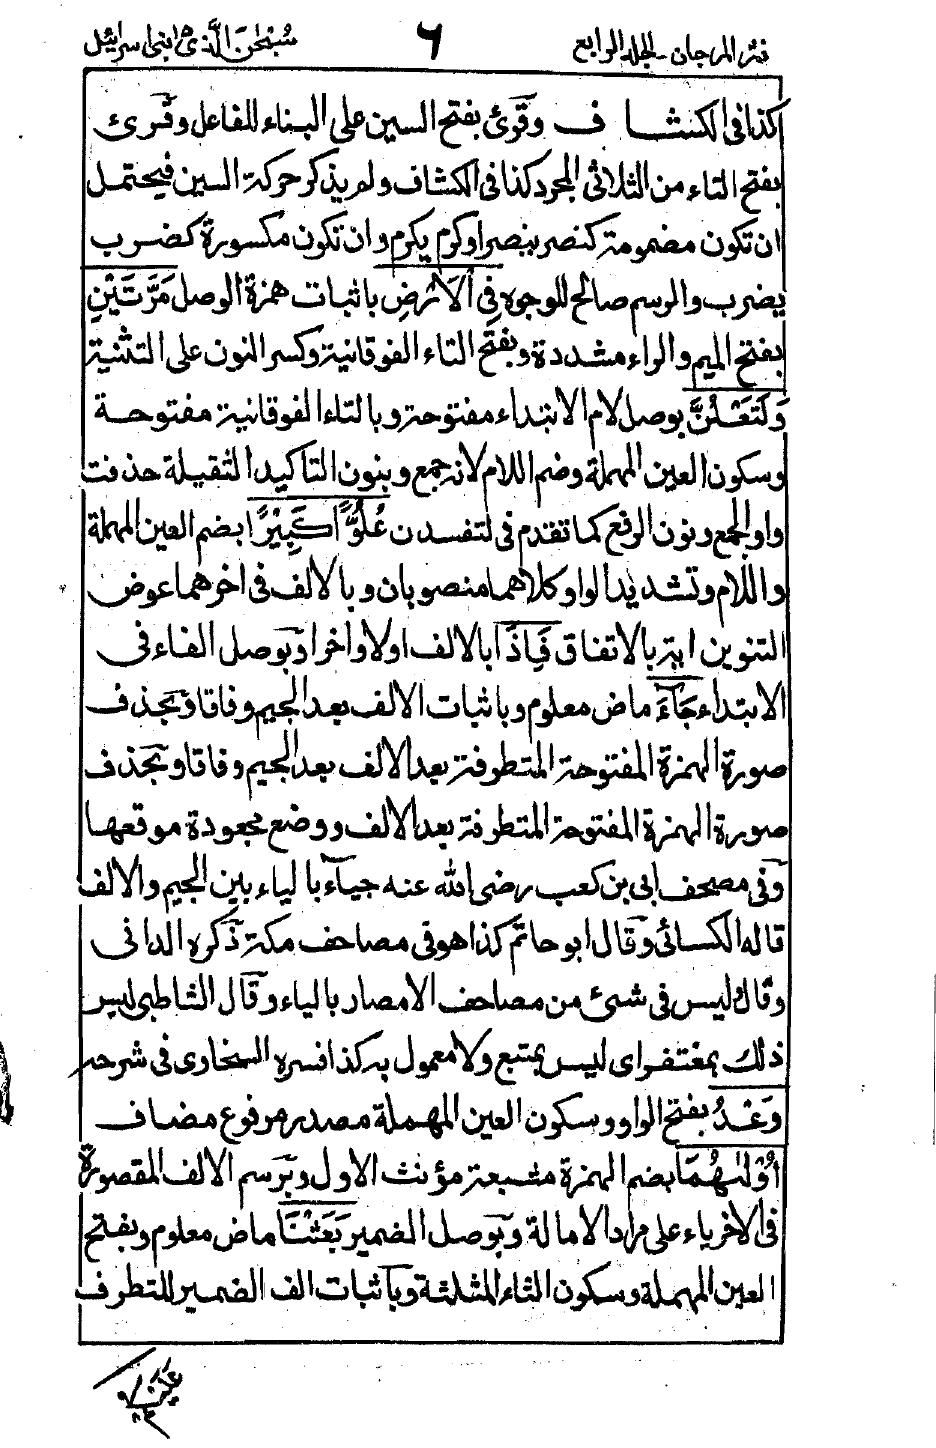 نثر المرجان - الجلد الرابع ٦ سبحن الذى ١٥ بنى اسرائيل
كذا فى الكشاف وقرئ بفتح السين على البناء للفاعل وقرئ
بفتح التاء من الثلاثى المجرد كذا فى الكشاف ولم يذكر حركة السين فيحتمل
ان تكون مضمومة كنصر ينصر او كرم يكرم وان تكون مكسورة كضرب
يضرب والرسم صالح للوجوه فِى الْاَرْضِ باثبات همزة الوصل مَرَّتَيْنِ
بفتح الميم والراء مشددة وبفتح التاء الفوقانية وكسر النون على التثنية
وَلَتَعْلُنَّ بوصل لام الابتداء مفتوحة وبالتاء الفوقانية مفتوحة
وسكون العين المهملة وضم اللام لانه جمع وبنون التاكيد الثقيلة حذفت
واو الجمع ونون الرفع كما تقدم فى لتفسدن عُلُوًّا كَبِيْرًا بضم العين المهملة
واللام وتشديد الواو وكلاهما منصوبان وبالالف فى اخرهما عوض
التنوين ايه بالاتفاق فَاِذَا بالالف اولا واخرا وبوصل الفاء فى
الابتداء جَآءَ ماض معلوم وباثبات الالف بعد الجيم وفاقا وبحذف
صورة الهمزة المفتوحة المتطرفة بعد الالف بعد الجيم وفاقا وبحذف
صورة الهمزة المفتوحة المتطرفة بعد الالف ووضع مجعودة موقعها
وفى مصحف ابى بن كعب رضى الله عنه جيآء بالياء بين الجيم والالف
قاله الكسائى وقال ابو حاتم كذا هو فى مصاحف مكة ذكره الدانى
وقال ليس فى شئ من مصاحف الامصار بالياء وقال الشاطبى ليس
ذلك بمغتفر اى ليس بمتبع ولا معمول به كذا فسره السخاوى فى شرحه
وَعْدُ بفتح الواو وسكون العين المهملة مصدر مرفوع مضاف
اُوْلٰىهُمَا بضم الهمزة مشبعة مؤنث الاول وبرسم الالف المقصورة
فى الاخر ياء على مراد الامالة وبوصل الضمير بَعَثْنَا ماض معلوم وبفتح
العين المهملة وسكون الثاء المثلثة وباثبات الف الضمير للتطرف